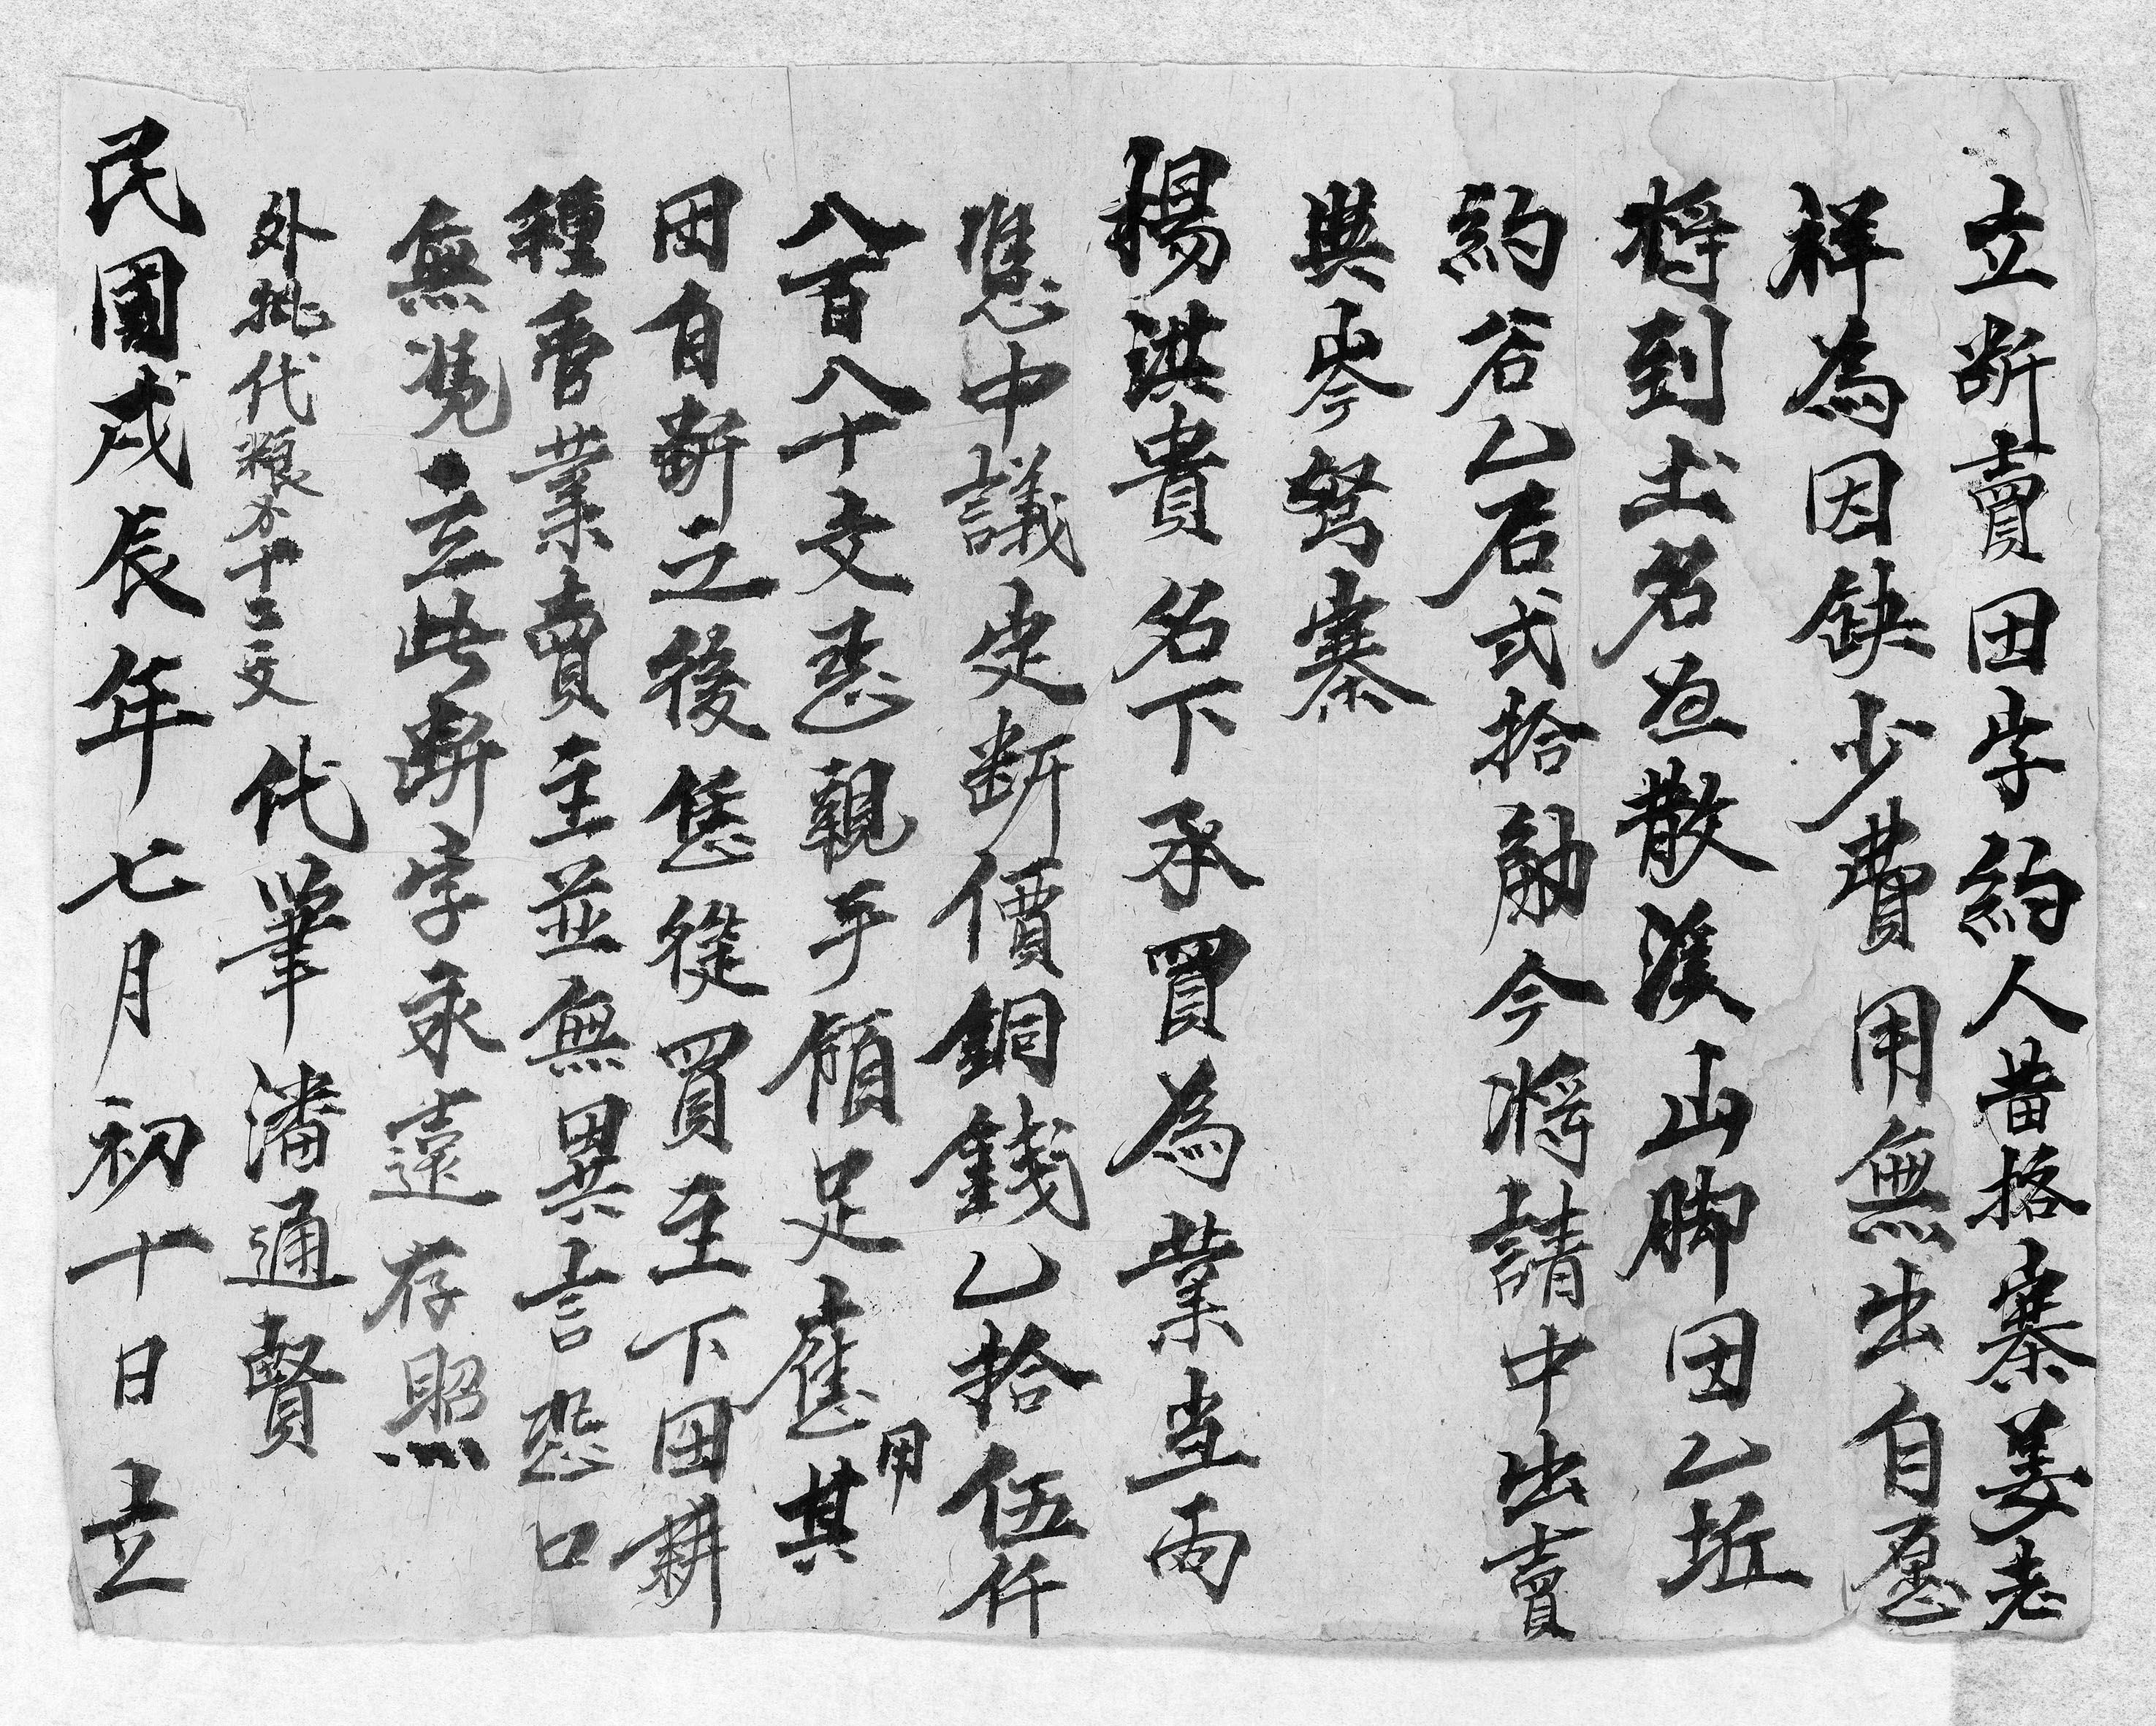 立斷賣田字約人苗格寨姜老
祥為因缺少費用無出自愿
將到土名迫散溪山脚田乙坵
約谷乙石弍拾觔今將請中出賣
與岑努寨
楊洪貴名下承買為業当両
憑中議定断價銅錢乙拾伍仟
八百八十文恁親手領足應用其
田自斷之後恁從買主下田耕
種管業賣主並無異言恐口
無憑立此斷字永遠存照
外批代粮分十二文 代筆潘通賢
民國戊辰年七月初十日立